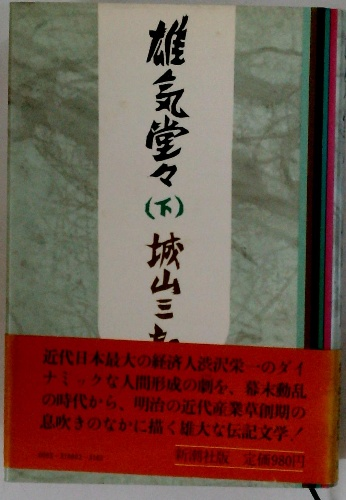 雄気堂々
(下)
城山三
近代日本最大の経済人渋沢栄一のダイ
ナミックな人間形成の劇を、幕末動乱
の時代から、明治の近代産業草創期の
息吹きのなかに描く雄大な伝記文学！
新潮社版 定価980円